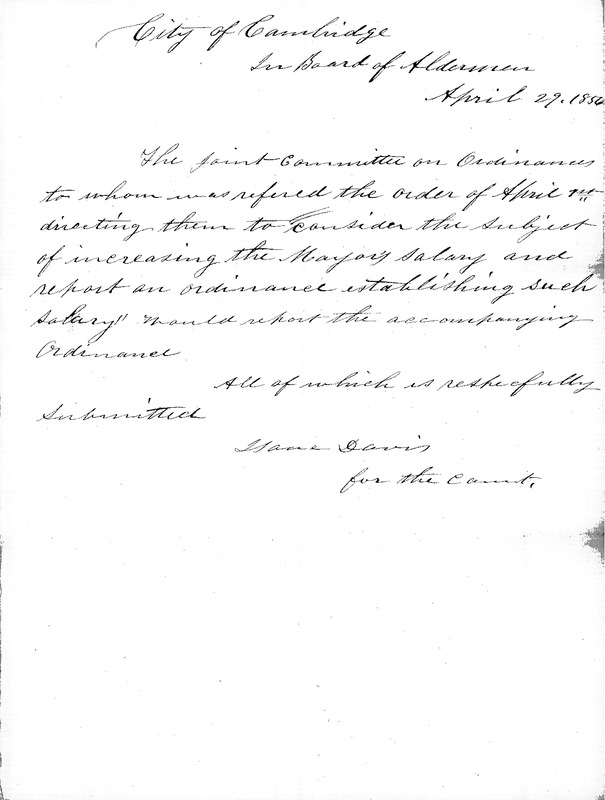 City of Cambridge
In Board of Aldermen
April 29. 1856
The joint Committee on Ordinances
to whom was refered the order of April 1st
directing them to "consider the subject
of increasing the Mayors salary and
report an ordinance establishing such
salary" would report the accompanying
Ordinance
All of which is respecfully
Submitted
Isaac Davis
for the Comt.